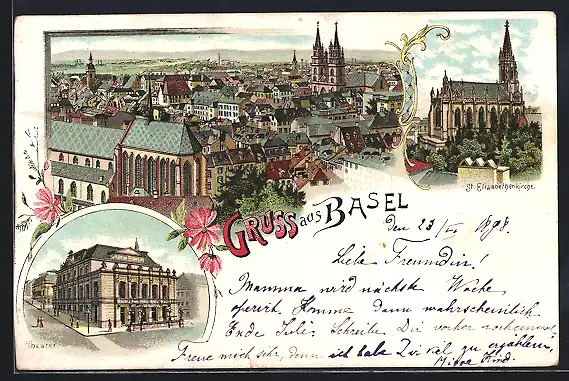 St. Elisabethenkirche.
GRUSS aus BASEL
Theater
den 23/ 1898.
Liebe Freundin!
Mamma wird nächste Woche
Komme dann wahrscheinlich
Ende Juli. Schreibe Dir vorher noch einmal
Freue mich sehr, denn ich habe Dir viel zu erzählen,